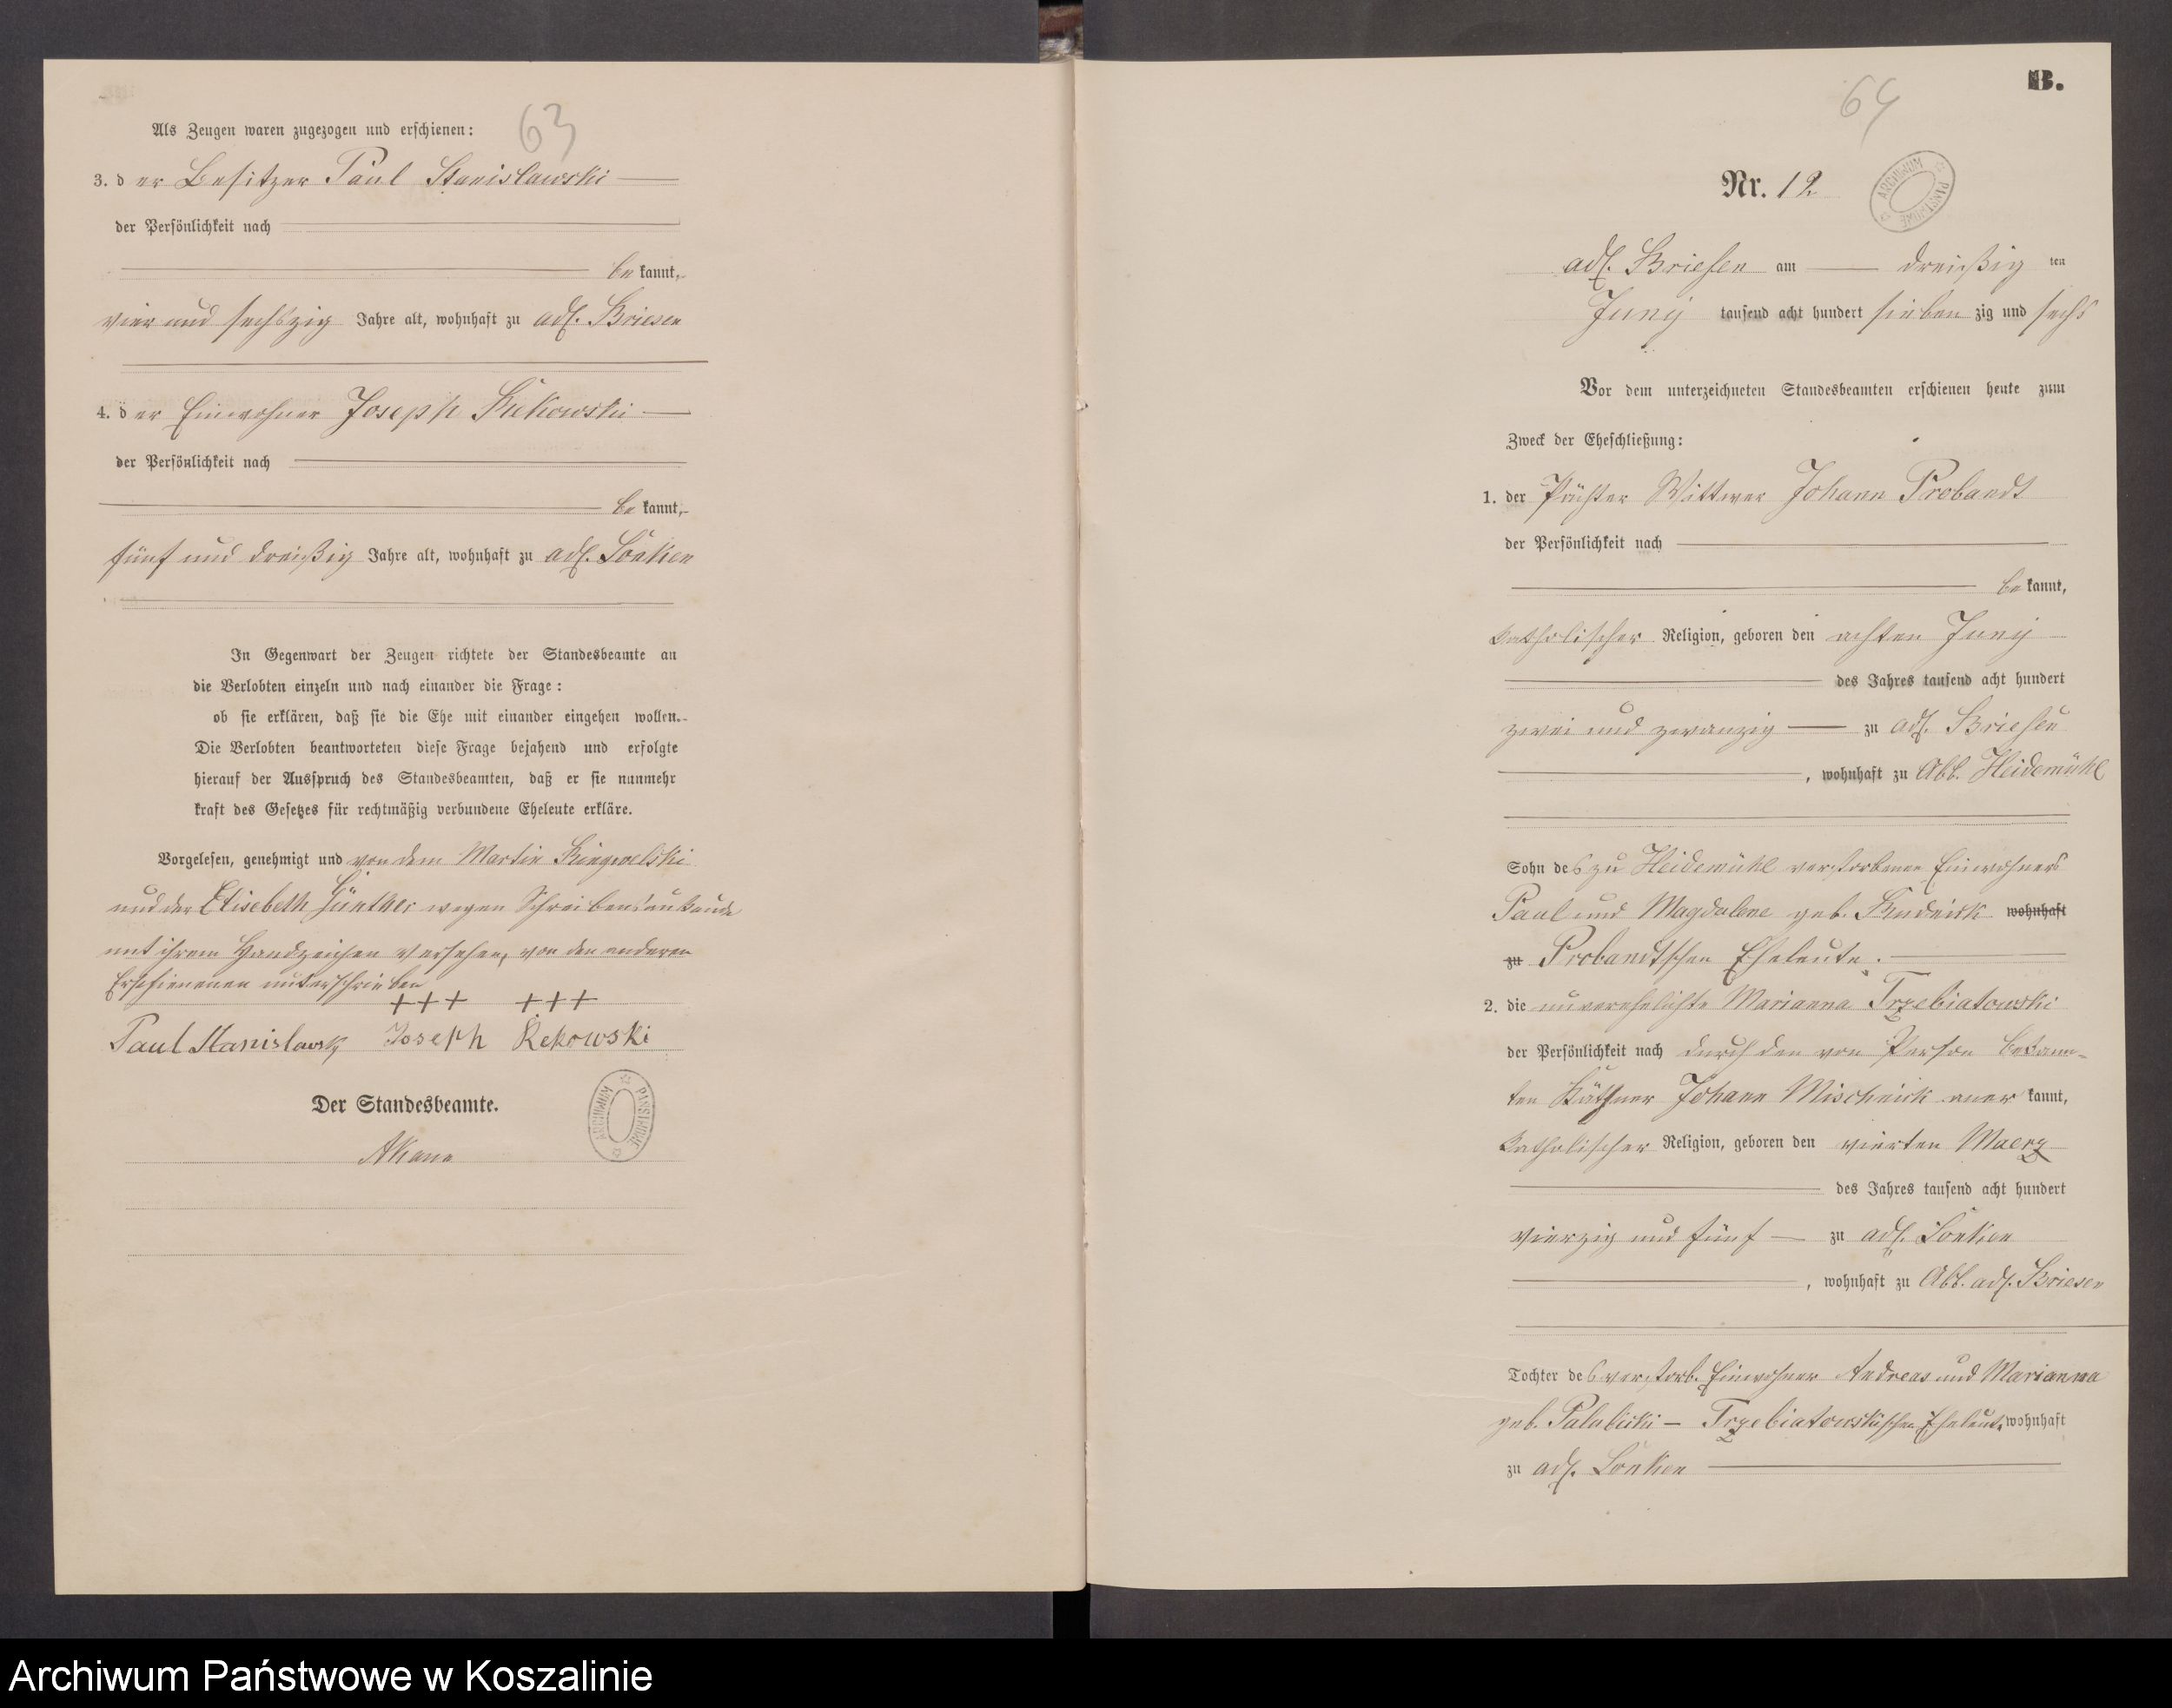 63
Als Zeugen waren zugezogen und erschienen:
3. der Besitzer Paul Stanislawski
der Persönlichkeit nach
bekannt,
vier und sechszig Jahre alt, wohnhaft zu adl. Briesen
4. der Einwohner Joseph Kukowski
der Persönlichkeit nach
bekannt,
fünf und dreißig Jahre alt, wohnhaft zu adl. Lonken
In Gegenwart der Zeugen richtete der Standesbeamte an
die Verlobten einzeln und nach einander die Frage:
ob sie erklären, daß sie die Ehe mit einander eingehen wollen.
Die Verlobten beantworteten diese Frage bejahend und erfolgte
hierauf der Ausspruch des Standesbeamten, daß er sie nunmehr
kraft des Gesetzes für rechtmäßig verbundene Eheleute erkläre.
Vorgelesen, genehmigt und von dem Martin
und der Elisebeth Günther wegen Schreibensunkunde
mit ihrem Handzeichen versehen, von den anderen
Erschienenen unterschrieben
+++ +++
Paul Stanislawsky Joseph Rekowski
Der Standesbeamte.
ARCHIWUM PAŃSTWOWE
64
B.
Nr. 12
ARCHIWUM PAŃSTWOWE
adl. Briesen am dreißig ten
Juny tausend acht hundert sieben zig und sechs
Vor dem unterzeichneten Standesbeamten erschienen heute zum
Zweck der Eheschließung:
1. der Pächter Wittwer Johann Probandt
der Persönlichkeit nach
bekannt,
katholischer Religion, geboren den achten Juny
des Jahres tausend acht hundert
zwei und zwanzig zu adl. Briesen
, wohnhaft zu Abb. Heidemühl
Sohn des zu Heidemühl verstorbenen Einwohners
Paul und Magdalene geb. wohnhaft
zu Probandtschen Eheleute.
2. die unverehelichte Marianna Trzebiatowski
der Persönlichkeit nach durch den von Person bekann-
ten Käthner Johann Mischnick aner kannt,
katholischer Religion, geboren den vierten Maerz
des Jahres tausend acht hundert
vierzig und fünf zu adl. Lonken
, wohnhaft zu Abb. adl. Briesen
Tochter des verstorb. Einwohner Andreas und Marianna
geb. Palubicki - Trzebiatowskischen Eheleute wohnhaft
zu adl. Lonken
Archiwum Państwowe w Koszalinie